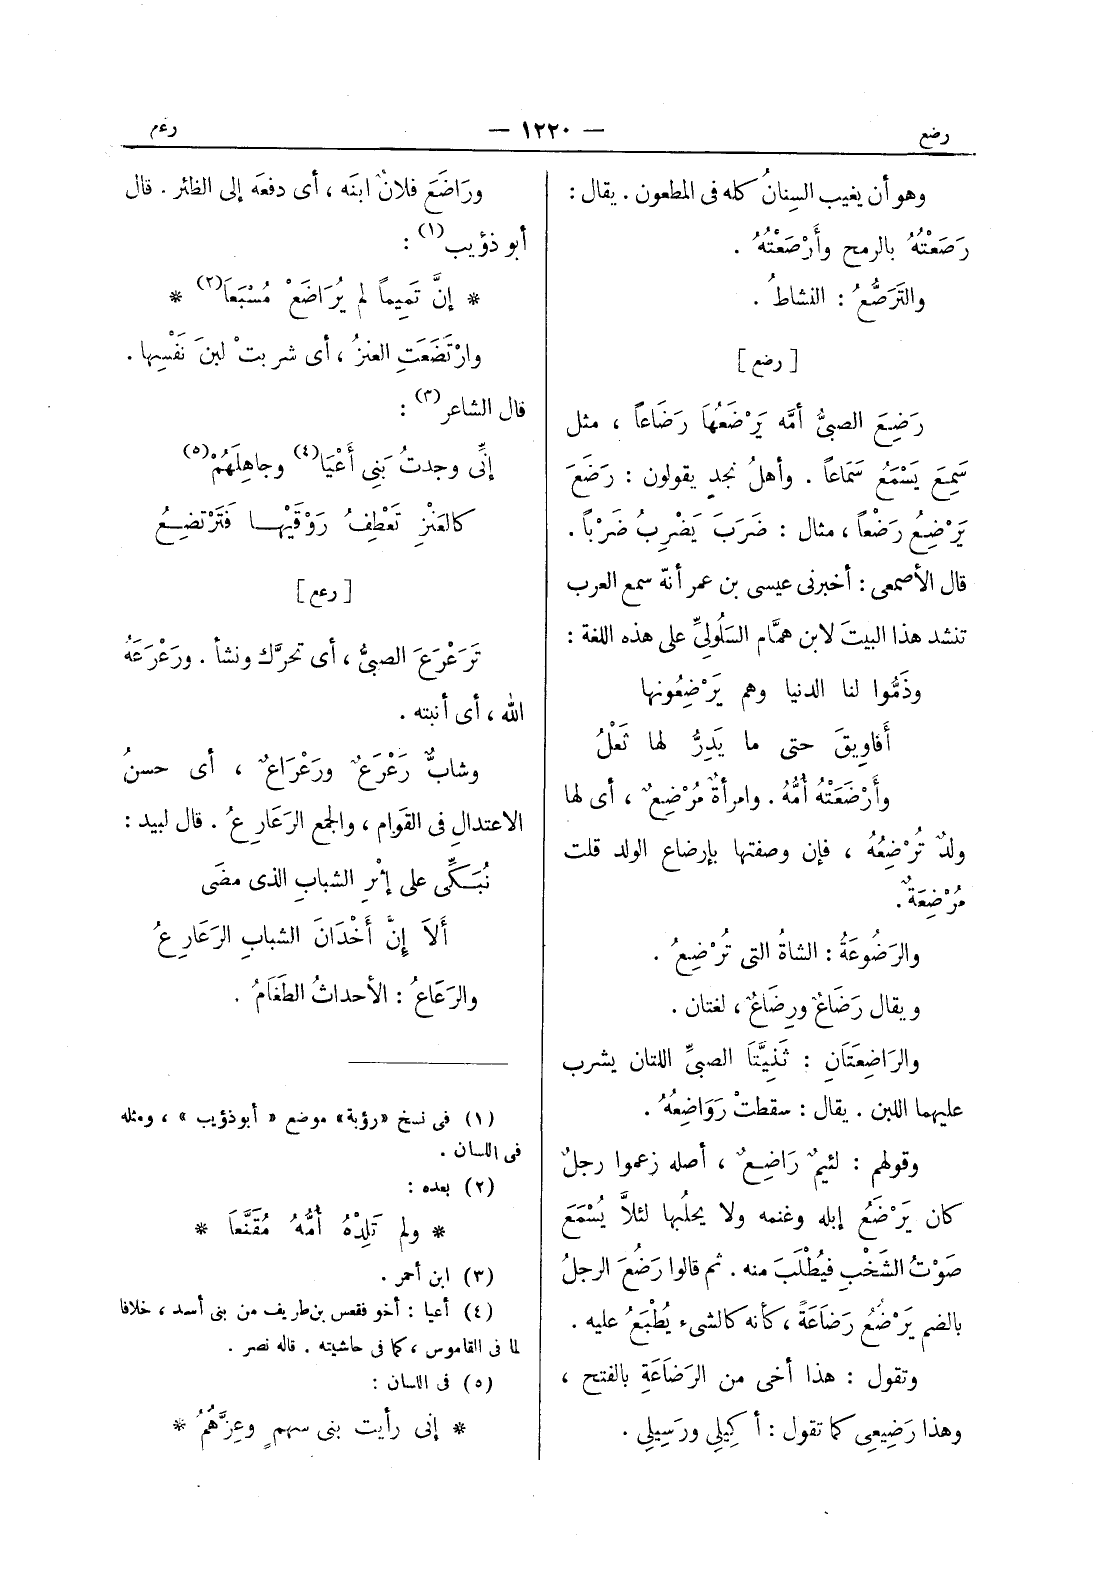 رضع
— ١٢٢٠ —
رعع
وهو أن يغيب السِنانُ كله فى المطعون . يقال :
رَصَعْتُهُ بالرمح وأَرْصَعْتُهُ .
والتَرَصُّعُ : النشاطُ .
[ رضع ]
رَضِعَ الصبىُّ أمَّه يَرْضَعُهَا رَضَاعاً ، مثل
سَمِعَ يَسْمَعُ سَمَاعاً . وأهلُ نجدٍ يقولون : رَضَعَ
يَرْضِعُ رَضْعاً ، مثال : ضَرَبَ يَضْرِبُ ضَرْباً .
قال الأصمعى : أخبرنى عيسى بن عمر أنّه سمع العرب
تنشد هذا البيتَ لابن همَّام السَلُولِىِّ على هذه اللغة :
وذَمُّوا لنا الدنيا وهم يَرْضِعُونها
أَفاوِيقَ حتى ما يَدِرُّ لها ثَعْلُ
وأَرْضَعَتْهُ أُمُّهُ . وامرأةٌ مُرْضِعٌ ، أى لها
ولدٌ تُرْضِعُهُ ، فإن وصفتها بإرضاع الولد قلت
مُرْضِعَةٌ .
والرَضُوعَةُ : الشاةُ التى تُرْضِعُ .
ويقال رَضَاعٌ ورِضَاعٌ ، لغتان .
والرَاضِعَتَانِ : ثَنِيَّتَا الصبىِّ اللتان يشرب
عليهما اللبن . يقال : سقطتْ رَوَاضِعُهُ .
وقولهم : لئيمٌ رَاضِعٌ ، أصله زعموا رجلٌ
كان يَرْضَعُ إبله وغنمه ولا يحلُبها لئلاَّ يُسْمَعَ
صَوْتُ الشَخْبِ فيُطْلَبَ منه . ثم قالوا رَضُعَ الرجلُ
بالضم يَرْضُعُ رَضَاعَةً ، كأنه كالشىء يُطْبَعُ عليه .
وتقول : هذا أخى من الرَضَاعَةِ بالفتح ،
وهذا رَضِيعِى كما تقول : أكِيلِى ورَسِيلِى .
ورَاضَعَ فلانٌ ابنَه ، أى دفعَه إلى الظئر . قال
أبو ذؤيب(١) :
* إنَّ تَمِيماً لم يُرَاضَعْ مُسْبَعَا(٢) *
وارْتَضَعَتِ العنزُ ، أى شربتْ لبنَ نَفْسِها .
قال الشاعر(٣) :
إنِّى وجدتُ بَنِى أَعْيَا(٤) وجاهِلَهُمْ(٥)
كالعَنْزِ تَعْطِفُ رَوْقَيْها فتَرْتضِعُ
[ رعع ]
تَرَعْرَعَ الصبىُّ ، أى تحرَّك ونشأ . ورَعْرَعَهُ
الله ، أى أنبته .
وشابٌّ رَعْرَعٌ ورَعْرَاعٌ ، أى حسنُ
الاعتدالِ فى القَوام ، والجمع الرَعَارِعُ . قال لبيد :
نُبَكِّى على إثْرِ الشبابِ الذى مضَى
أَلاَ إِنَّ أَخْدَانَ الشبابِ الرَعَارِعُ
والرَعَاعُ : الأحداثُ الطَغَامُ .
(١) فى نسخ «رؤبة» موضع « أبوذؤيب » ، ومثله
فى اللسان .
(٢) بعده :
* ولم تَلِدْهُ أُمُّهُ مُقَنَّعَا *
(٣) ابن أحمر .
(٤) أعيا : أخو فقعس بن طريف من بنى أسد ، خلافا
لما فى القاموس ، كما فى حاشيته . قاله نصر .
(٥) فى اللسان :
* إنى رأيت بنى سهمٍ وعِزَّهُمُ *